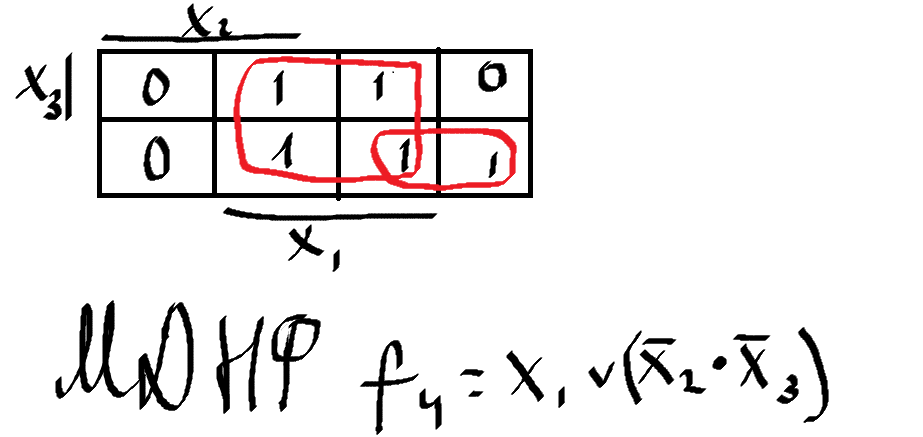 x₂
x₃ 0 1 1 0
0 1 1 1
x₁
МДНФ f₄ = x₁ v (x̄₂ · x̄₃)